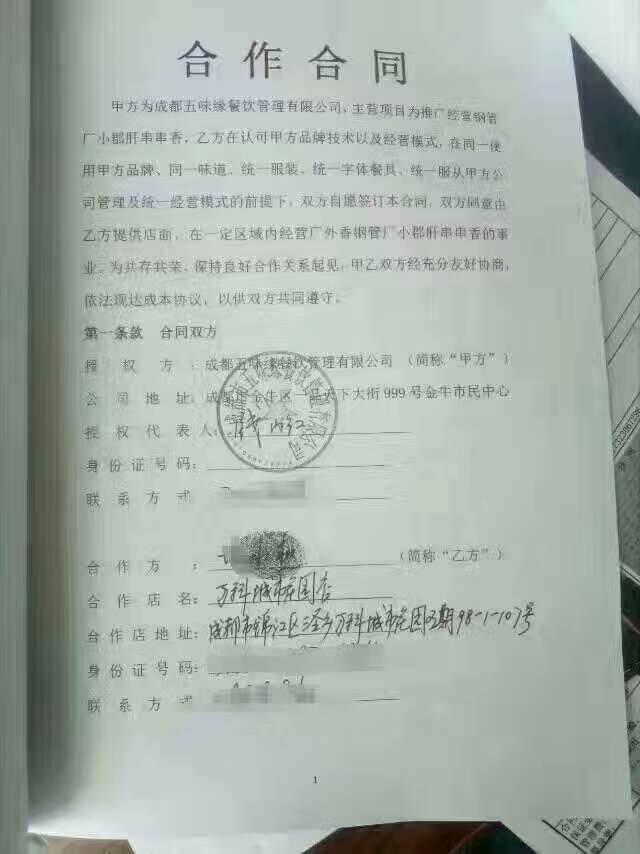 合作合同
甲方为成都五味缘餐饮管理有限公司，主营项目为推广经营钢管
厂小郡肝串串香，乙方在认可甲方品牌技术以及经营模式，在同一使
用甲方品牌、同一味道、统一服装、统一字体餐具、统一服从甲方公
司管理及统一经营模式的前提下，双方自愿签订本合同，双方同意由
乙方提供店面，在一定区域内经营厂外香钢管厂小郡肝串串香的事
业。为共存共荣，保持良好合作关系起见，甲乙双方经充分友好协商，
依法现达成本协议，以供双方共同遵守。
第一条款 合同双方
授权方：成都五味缘餐饮管理有限公司（简称“甲方”）
公司地址：成都市金牛区一品天下大街999号金牛市民中心
授权代表人：
身份证号码：
联系方式
合作方：（简称“乙方”）
合作店名：万科城市花园店
合作店地址：成都市锦江区三圣乡万科城市花园五期98-1-107号
身份证号码：
联系方式
1